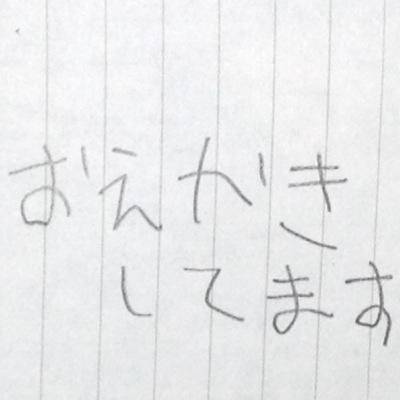 おえかき
してます